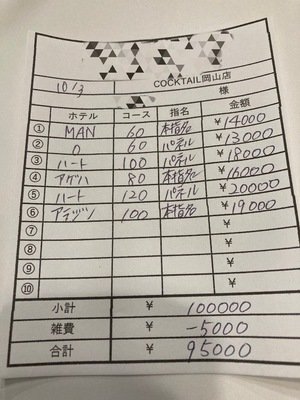 COCKTAIL岡山店
10/3 様
ホテル コース 指名 金額
① MAN 60 本指名 ¥14000
② 〃 60 パネル ¥13000
③ ハート 100 パネル ¥18000
④ アゲハ 80 本指名 ¥16000
⑤ ハート 120 パネル ¥20000
⑥ 100 本指名 ¥19000
⑦ ¥
⑧ ¥
⑨ ¥
⑩ ¥
小計 ¥ 100000
雑費 ¥ -5000
合計 ¥ 95000